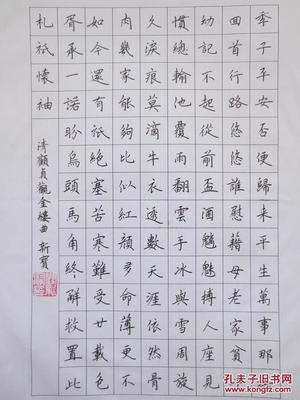 季子平安否便歸来平生萬事那堪
回首行路悠悠誰慰藉母老家貧子
幼記不起從前盃酒魑魅搏人應見
慣總輸他覆雨翻雲手冰與雪周旋
久淚痕莫滴牛衣透數天涯依然骨
肉幾家能夠比似紅顏多命薄更不
如今還有祇絕塞苦寒難受廿載包
胥承一諾盼烏頭馬角終解救置此
札祇懷袖
清顧貞觀金縷曲 新寶